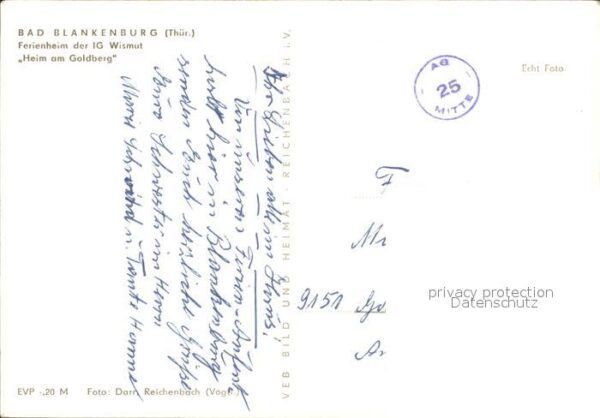 BAD BLANKENBURG (Thür.)
Ferienheim der IG Wismut
„Heim am Goldberg"
Ihr Lieben alle im Haus!
Von unserem Ferien-Aufent
halt hier in Blankenburg
senden Euch herzliche Grüße
Eure Schwester im Herrn
Maria u. Tante Hanna
VEB BILD UND HEIMAT · REICHENBACH i.V.
AG
25
MITTE
Echt Foto
F
9151
privacy protection
Datenschutz
EVP -,20 M
Foto: Darr, Reichenbach (Vogtl.)